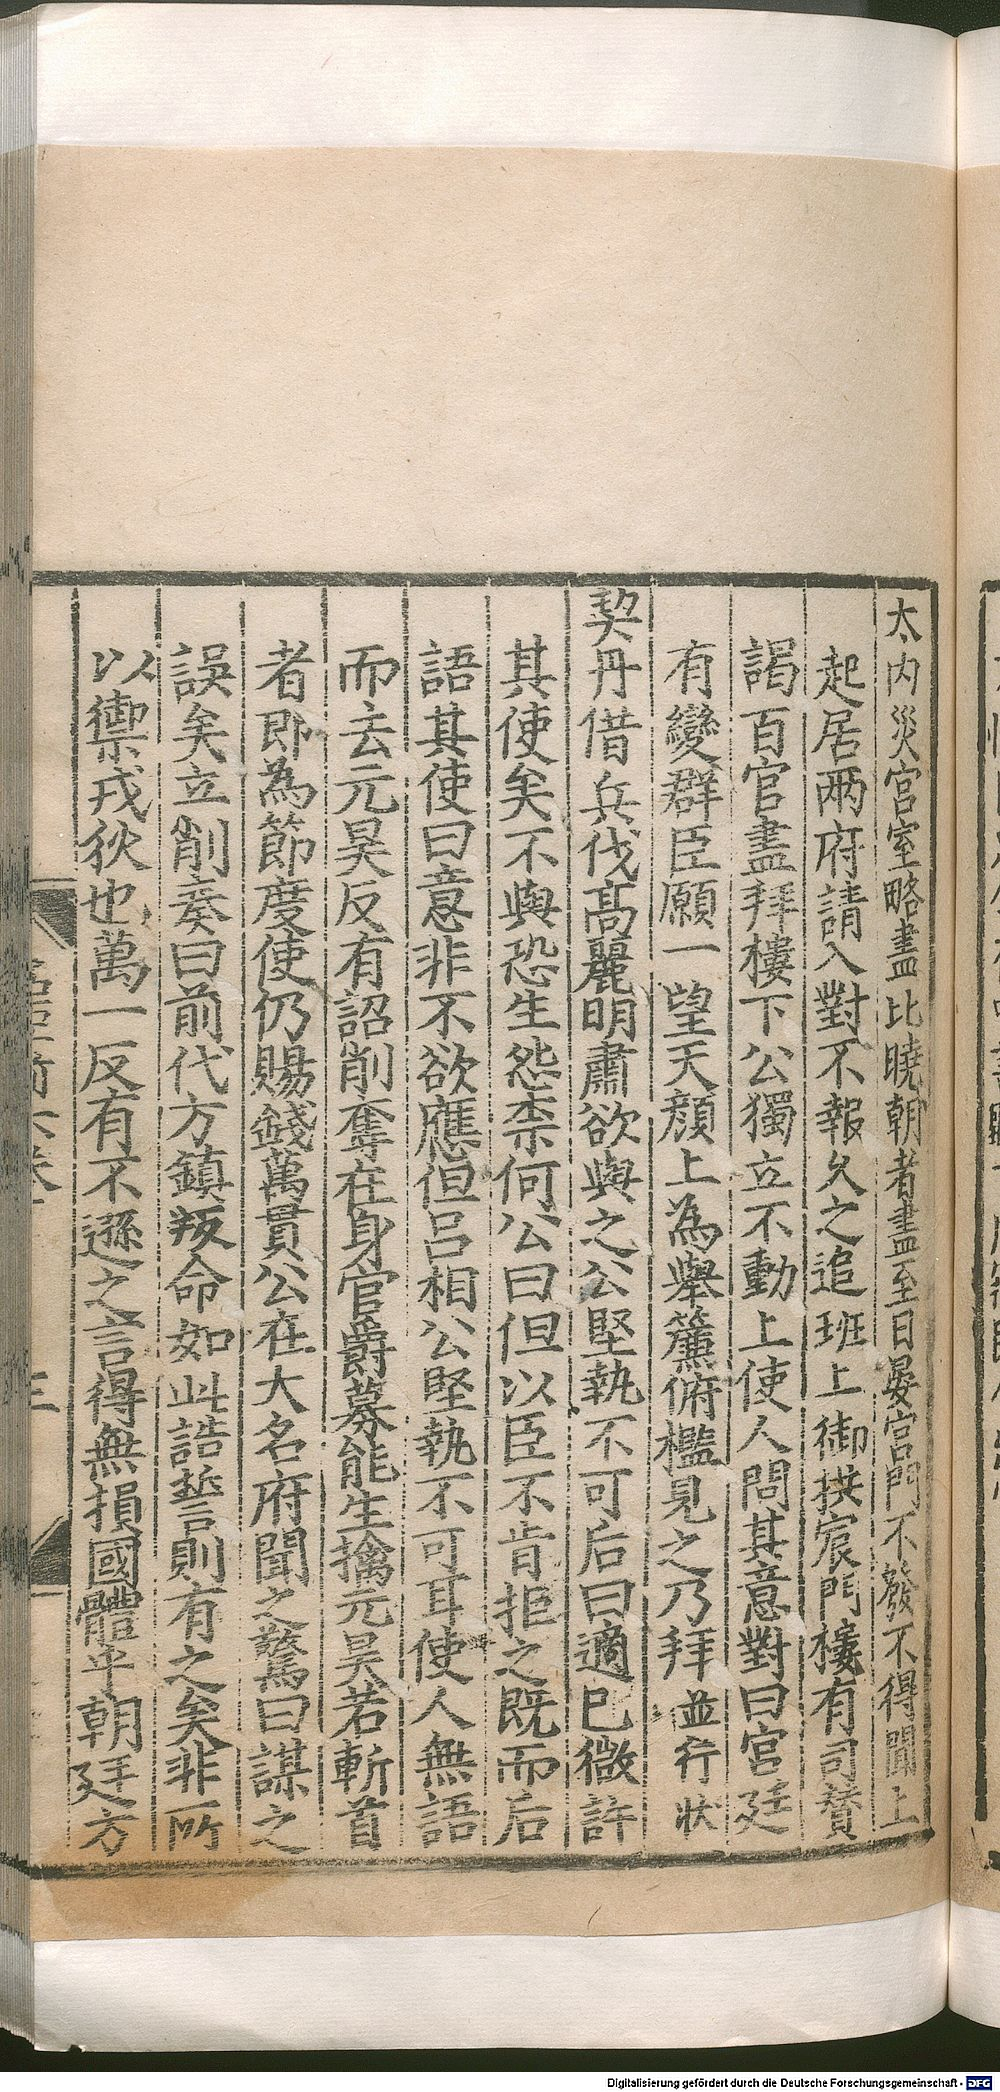 太内災宮室略盡比曉朝者盡至日晏宮門不發不得聞上
起居兩府請入對不報久之追班上御拱宸門樓有司贊
謁百官盡拜樓下公獨立不動上使人問其意對曰宮廷
有變群臣願一望天顔上為舉簾俯檻見之乃拜並行狀
契丹借兵伐髙麗明肅欲與之公堅執不可后曰適已微許
其使矣不與恐生怨柰何公曰但以臣不肯拒之既而后
語其使曰意非不欲應但吕相公堅執不可耳使人無語
而去元昊反有詔削奪在身官爵募能生擒元昊若斬首
者即為節度使仍賜錢萬貫公在大名府聞之驚曰謀之
誤矣立削奏曰前代方鎮叛命如此誥誓則有之矣非所
以禦戎狄也萬一反有不遜之言得無損國體乎朝廷方
三
Digitalisierung gefördert durch die Deutsche Forschungsgemeinschaft - DFG